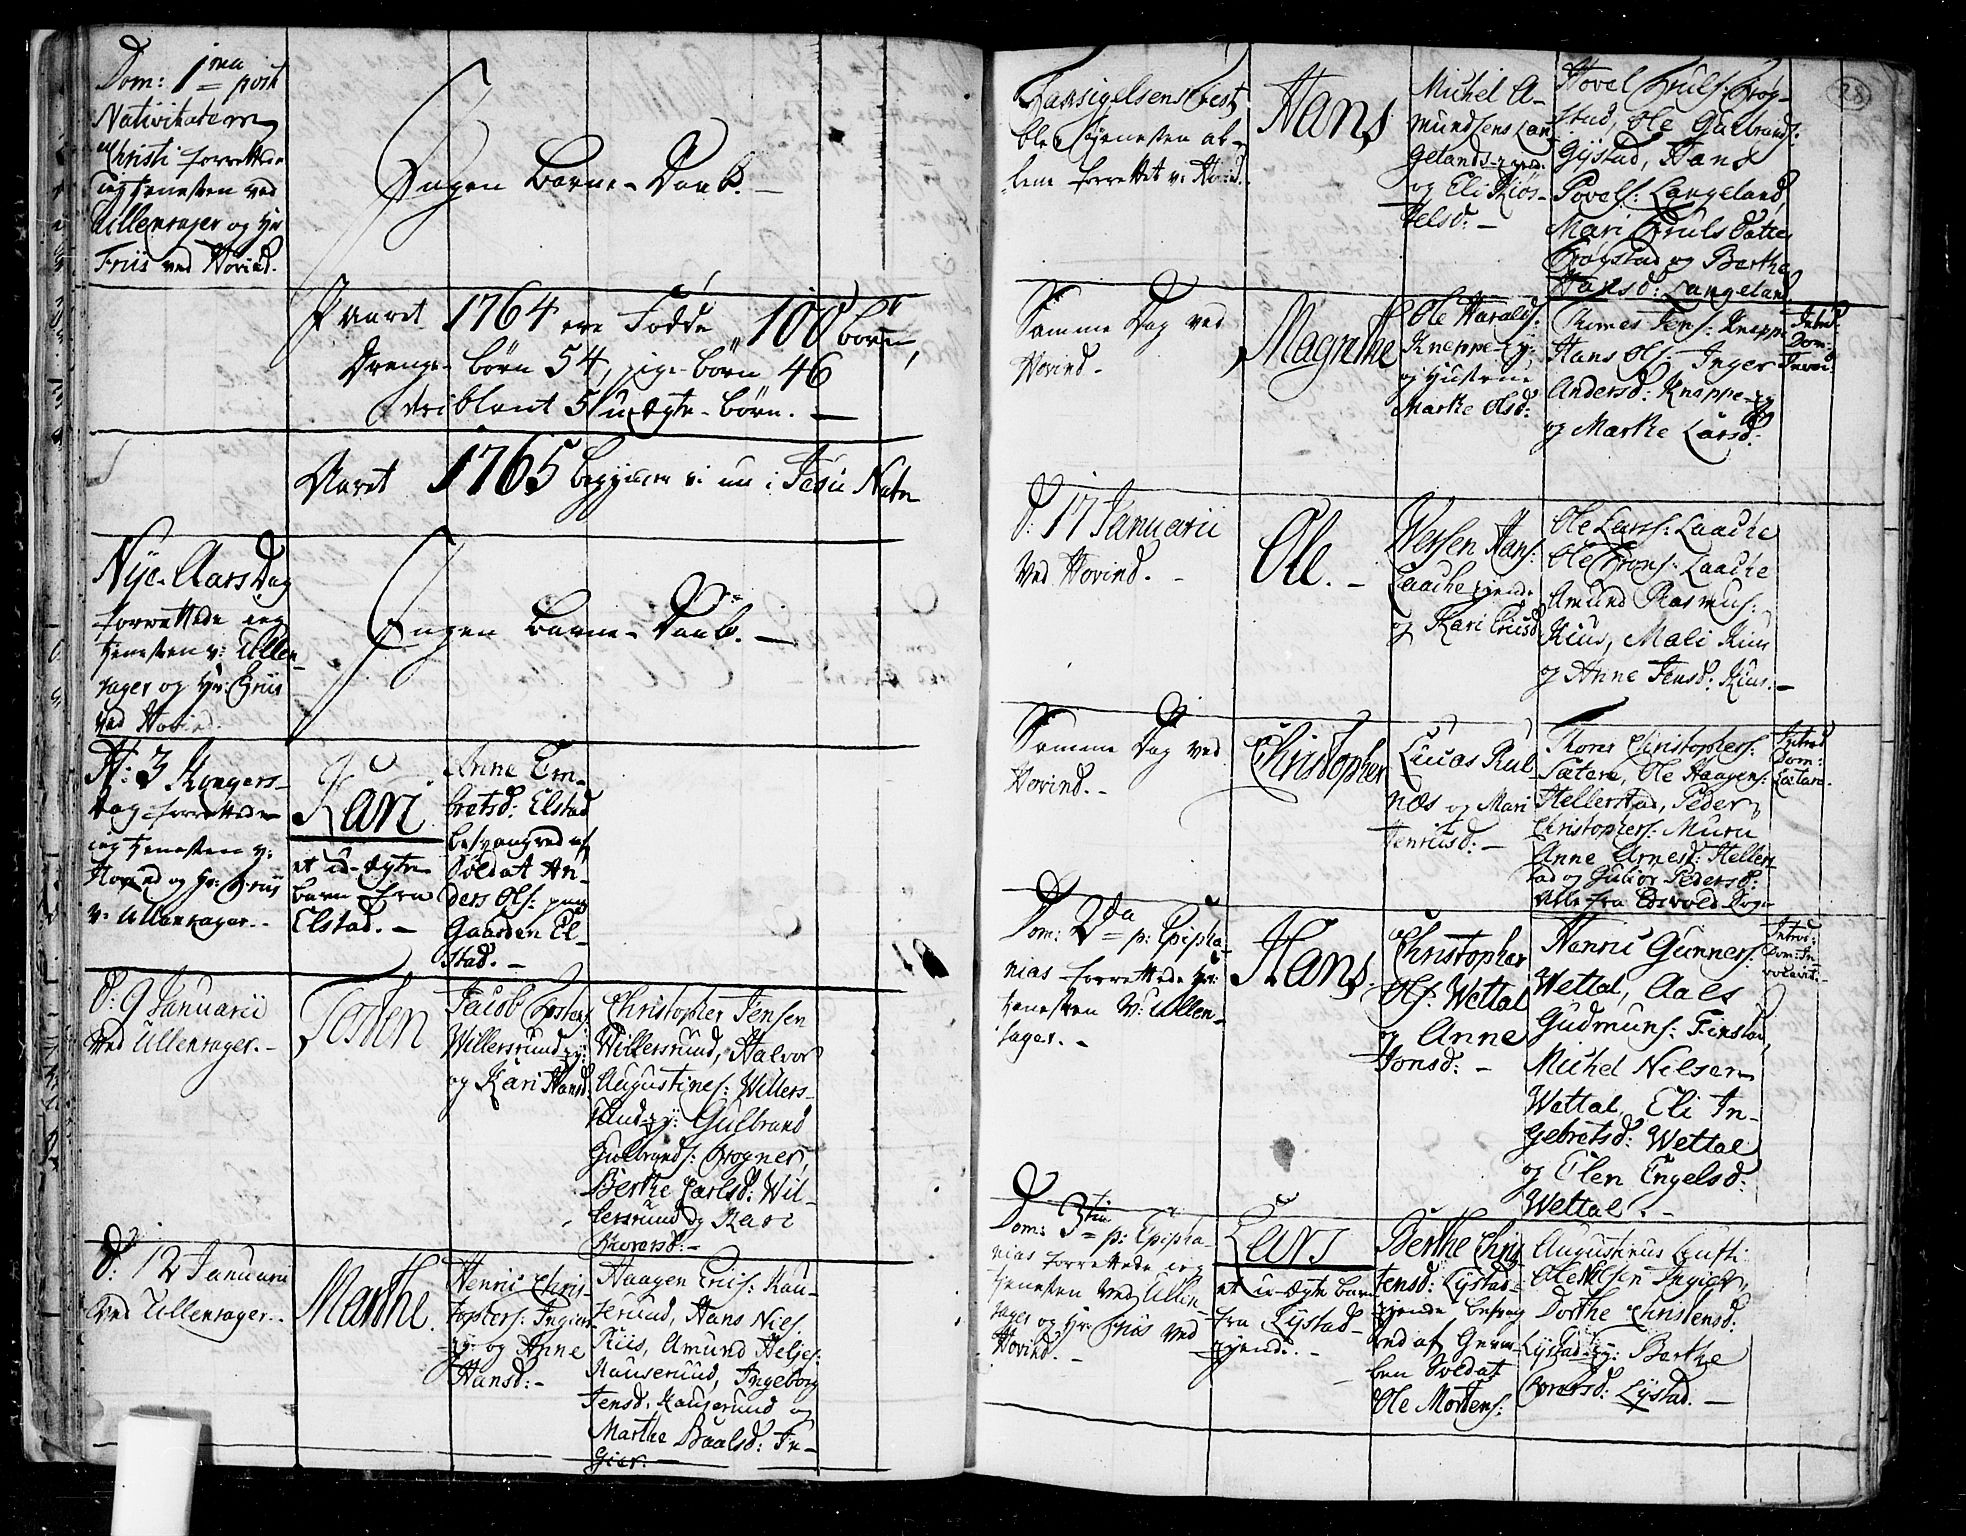 Dom: 1ma post
Nativitatem
Christi forrettede
ieg tienesten ved
Ullensager og Hr
Friis ved Hovind.
Ingen Barne-Daab. —
I Aaret 1764 ere Fødde 100 børn,
Drenge-børn 54, pige-børn 46
deriblant 5 uægte-børn. —
Aaret 1765 begynder vi nu i Jesu Nafn
Nye-Aars Dag
forrettede ieg
tienesten v: Ullen-
sager og Hr: Friis
ved Hovind.
Ingen Barne-Daab. —
H: 3 Kongers-
Dag forrettede
ieg tienesten v:
Hovind og Hr: Friis
v: Ullensager. -
Kari
et u-ægte
barn fra
Elstad. -
Anne Em-
bretsd: Elstad
besvangred af
Soldat An-
ders Ols: paa
Gaarden El-
stad. -
d: 9 Januarii
ved Ullensager. -
Testen
Jacob
Willersrund-ey:
og Kari Hansd.
Christopher Jensen
Willersrund, Halvor
Augustines: Willers-
rund-ey: Gulbrand
Gulbrands: Frogner,
Berthe Carlsd: Wil-
lersrund og Kari
d: 12 Januarii
ved Ullensager. -
Marthe.
Henric Chris-
tophers: Ingier-
ey: og Anne
Hansd: -
Haagen Erics: Kau-
serund, Hans Niels:
Riis, Amund Heljes:
Kauserund, Ingeborg
Jensd: Kauserund og
Marthe Paalsd: In-
gier. —
28
blev tienesten al-
lene forrettet v: Hovind.
Hans
Michel A-
mundsens Lan-
gelands-eyende
og Eli Kiøs-
telsd: -
Povel Truls: Frog-
stad, Ole Gulbrands:
Gystad, Hans
Povels: Langeland,
Mari Truls Datter
Frogstad og Berthe
Hansd: Langeland.
Samme Dag ved
Hovind. -
Magrethe
Ole Haralds:
Kneppe-ey:
og Hustrue
Marthe Olsd:
Thomes Jens: Kneppe
Hans Ols: Inger
Andersd: Kneppe-ey
og Marthe Larsd:
Introd:
Dom:
Invoc:
d: 17 Januarii
ved Hovind. -
Ole. -
Wessen Hans:
Laache eyende
og Kari Ericsd
Ole Lars: Laache
Ole Trons: Laache
Amund Rasmus:
Kius, Mali Kius
og Anne Jensd: Kius. -
Samme Dag ved
Hovind. -
Christopher
Lucas Rul-
næs og Mari
Henricsd: -
Thores Christophers:
Sætere, Ole Haagens:
Hellerstad, Peder
Christophers: Muru
Anne Arnesd: Hellers-
tad og Guloer Pedersd:
Alle fra Edsvold Sogn
Introd
Dom:
Lætare.
Dom: 2da p: Epipha-
nias forrettede Hr:
tienesten v: Ullen-
sager. -
Hans.
Christopher
Ols: Wettal
og Anne
Jonsd: -
Henric Gunners:
Wettal, Aaes
Gudmuns: Finstad,
Michel Nilsen
Wettal, Eli In-
gebretsd: Wettal
og Elen Engelsd:
Wettal. -
Introd:
Dom: In-
vocavit.
Dom: 3tia p: Epipha-
nias forrettede ieg
tienesten ved Ullen-
sager og Hr: Friis ved
Hovind. -
Lars
et u-ægte barn
fra Lystad-
eyende. -
Berthe Chris-
tensd: Lystad-
eyende besvang-
red af Geven-
ben Soldat
Ole Mortens:
Augustinus
Ole Nilsen Ingier,
Dorthe Christensd:
Lystad-ey: Berthe
Lystad. —